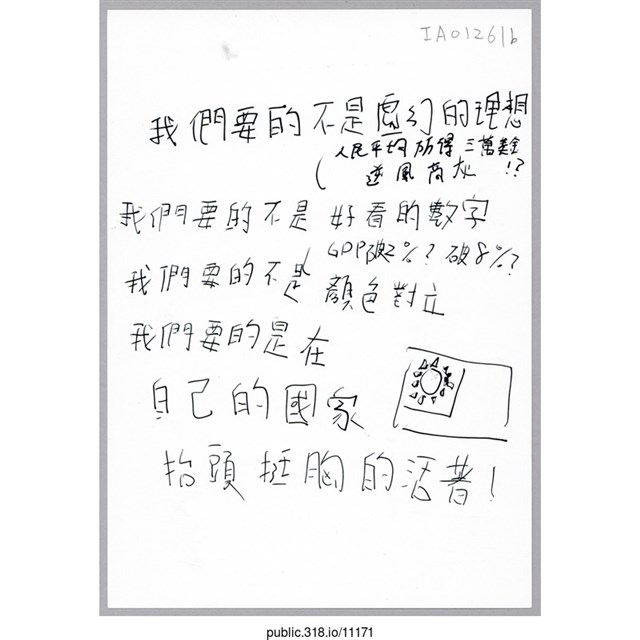 IA01261b
我們要的不是虛幻的理想
(人民平均所得三萬美金
逆風高灰!?
我們要的不是好看的數字
GDP破2%?破8%?
我們要的不是顏色對立
我們要的是在
自己的國家
抬頭挺胸的活著!
public.318.io/11171